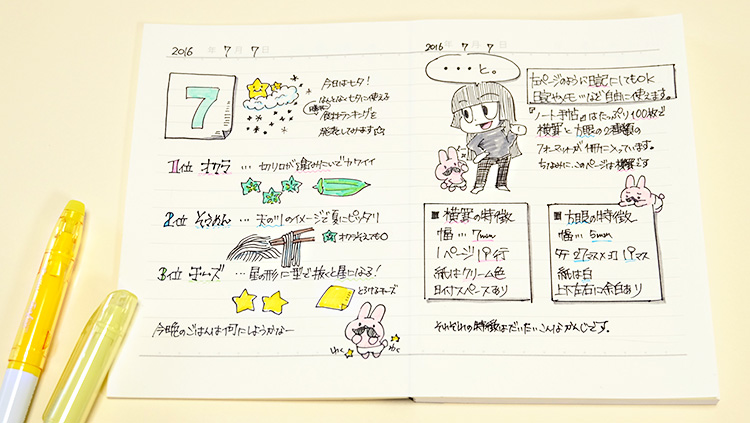 2016 年 7 月 7 日
7
今日は七夕!
なんとなく七夕に使える
食材ランキングを
発表してみます☆
1位 オクラ … 切り口が星みたいでカワイイ
2位 そうめん … 天の川のイメージで夏にピッタリ
オクラそえても○
3位 チーズ … 星の形に型で抜くと星になる!
とろけるチーズ
今晩のごはんは何にしようかなー
わく
わく
2016 年 7 月 7 日
・・・と。
左ページのように日記にしてもOK
日記やメモ…など自由に使えます。
『ノート手帖』はたっぷり100枚で
横罫と方眼の2種類の
フォーマットが1冊に入っています。
ちなみに、このページは横罫です
■横罫の特徴
幅… 7mm
1ページ19行
紙はクリーム色
日付スペースあり
■方眼の特徴
幅… 5mm
タテ27マス×ヨコ19マス
紙は白
上下左右に余白あり
それぞれの特徴はだいたいこんなかんじです。